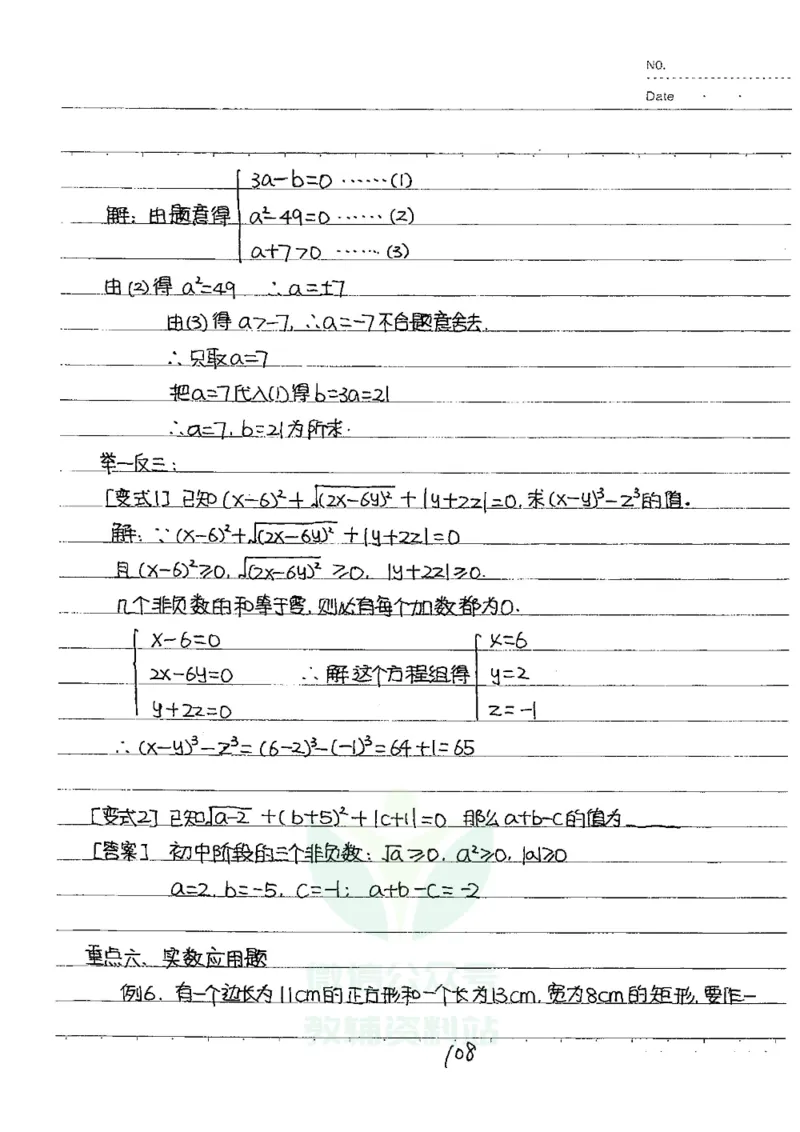 NO.
Date
3a-b=0 ……(1)
解：由题意得 a²-49=0 …… (2)
a+7>0 …… (3)
由(2)得 a²=49 ∴a=±7
由(3)得 a>-7, ∴a=-7不合题意舍去.
∴只取a=7
把a=7代入(1)得b=3a=21
∴a=7, b=21为所求.
举一反三：
[变式1] 已知 (x-6)²+√(2x-6y)²+|y+2z|=0, 求(x-y)³-z³的值.
解：∵(x-6)²+√(2x-6y)²+|y+2z|=0
且 (x-6)²≥0, √(2x-6y)²≥0, |y+2z|≥0.
几个非负数的和等于零, 则必有每个加数都为0.
x-6=0 x=6
2x-6y=0 ∴解这个方程组得 y=2
y+2z=0 z=-1
∴(x-y)³-z³=(6-2)³-(-1)³=64+1=65
[变式2] 已知√a-2+(b+5)²+|c+1|=0 那么a+b-c的值为______
[答案] 初中阶段的三个非负数：√a≥0, a²≥0, |a|≥0
a=2, b=-5, c=-1; a+b-c=-2
重点六、实数应用题
例6. 有一个边长为11cm的正方形和一个长为13cm, 宽为8cm的矩形, 要作一
微信公众号
教辅资料站
108